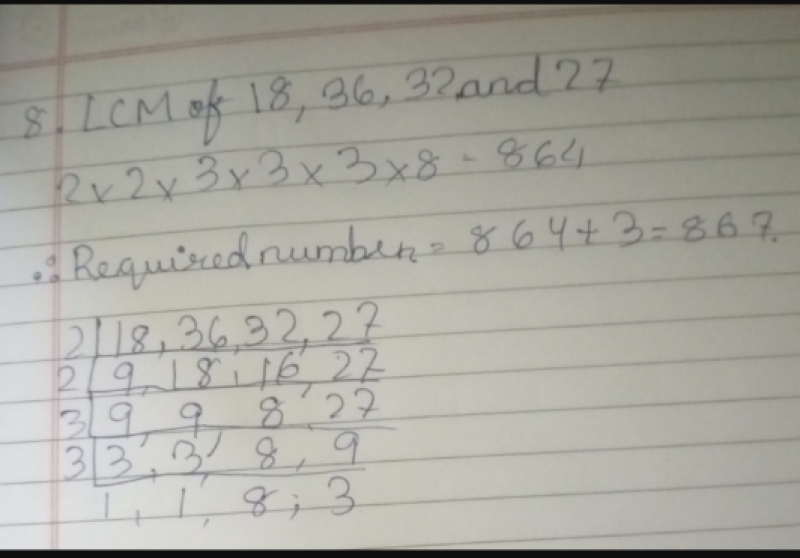 8. LCM of 18, 36, 32 and 27
2 x 2 x 3 x 3 x 3 x 8 = 864
∴ Required number = 864 + 3 = 867.
2 | 18, 36, 32, 27
2 | 9, 18, 16, 27
3 | 9, 9, 8, 27
3 | 3, 3, 8, 9
1, 1, 8, 3